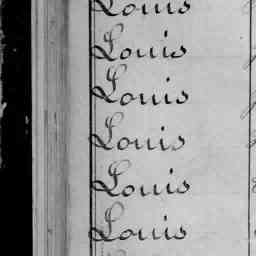 Louis
Louis
Louis
Louis
Louis
Louis